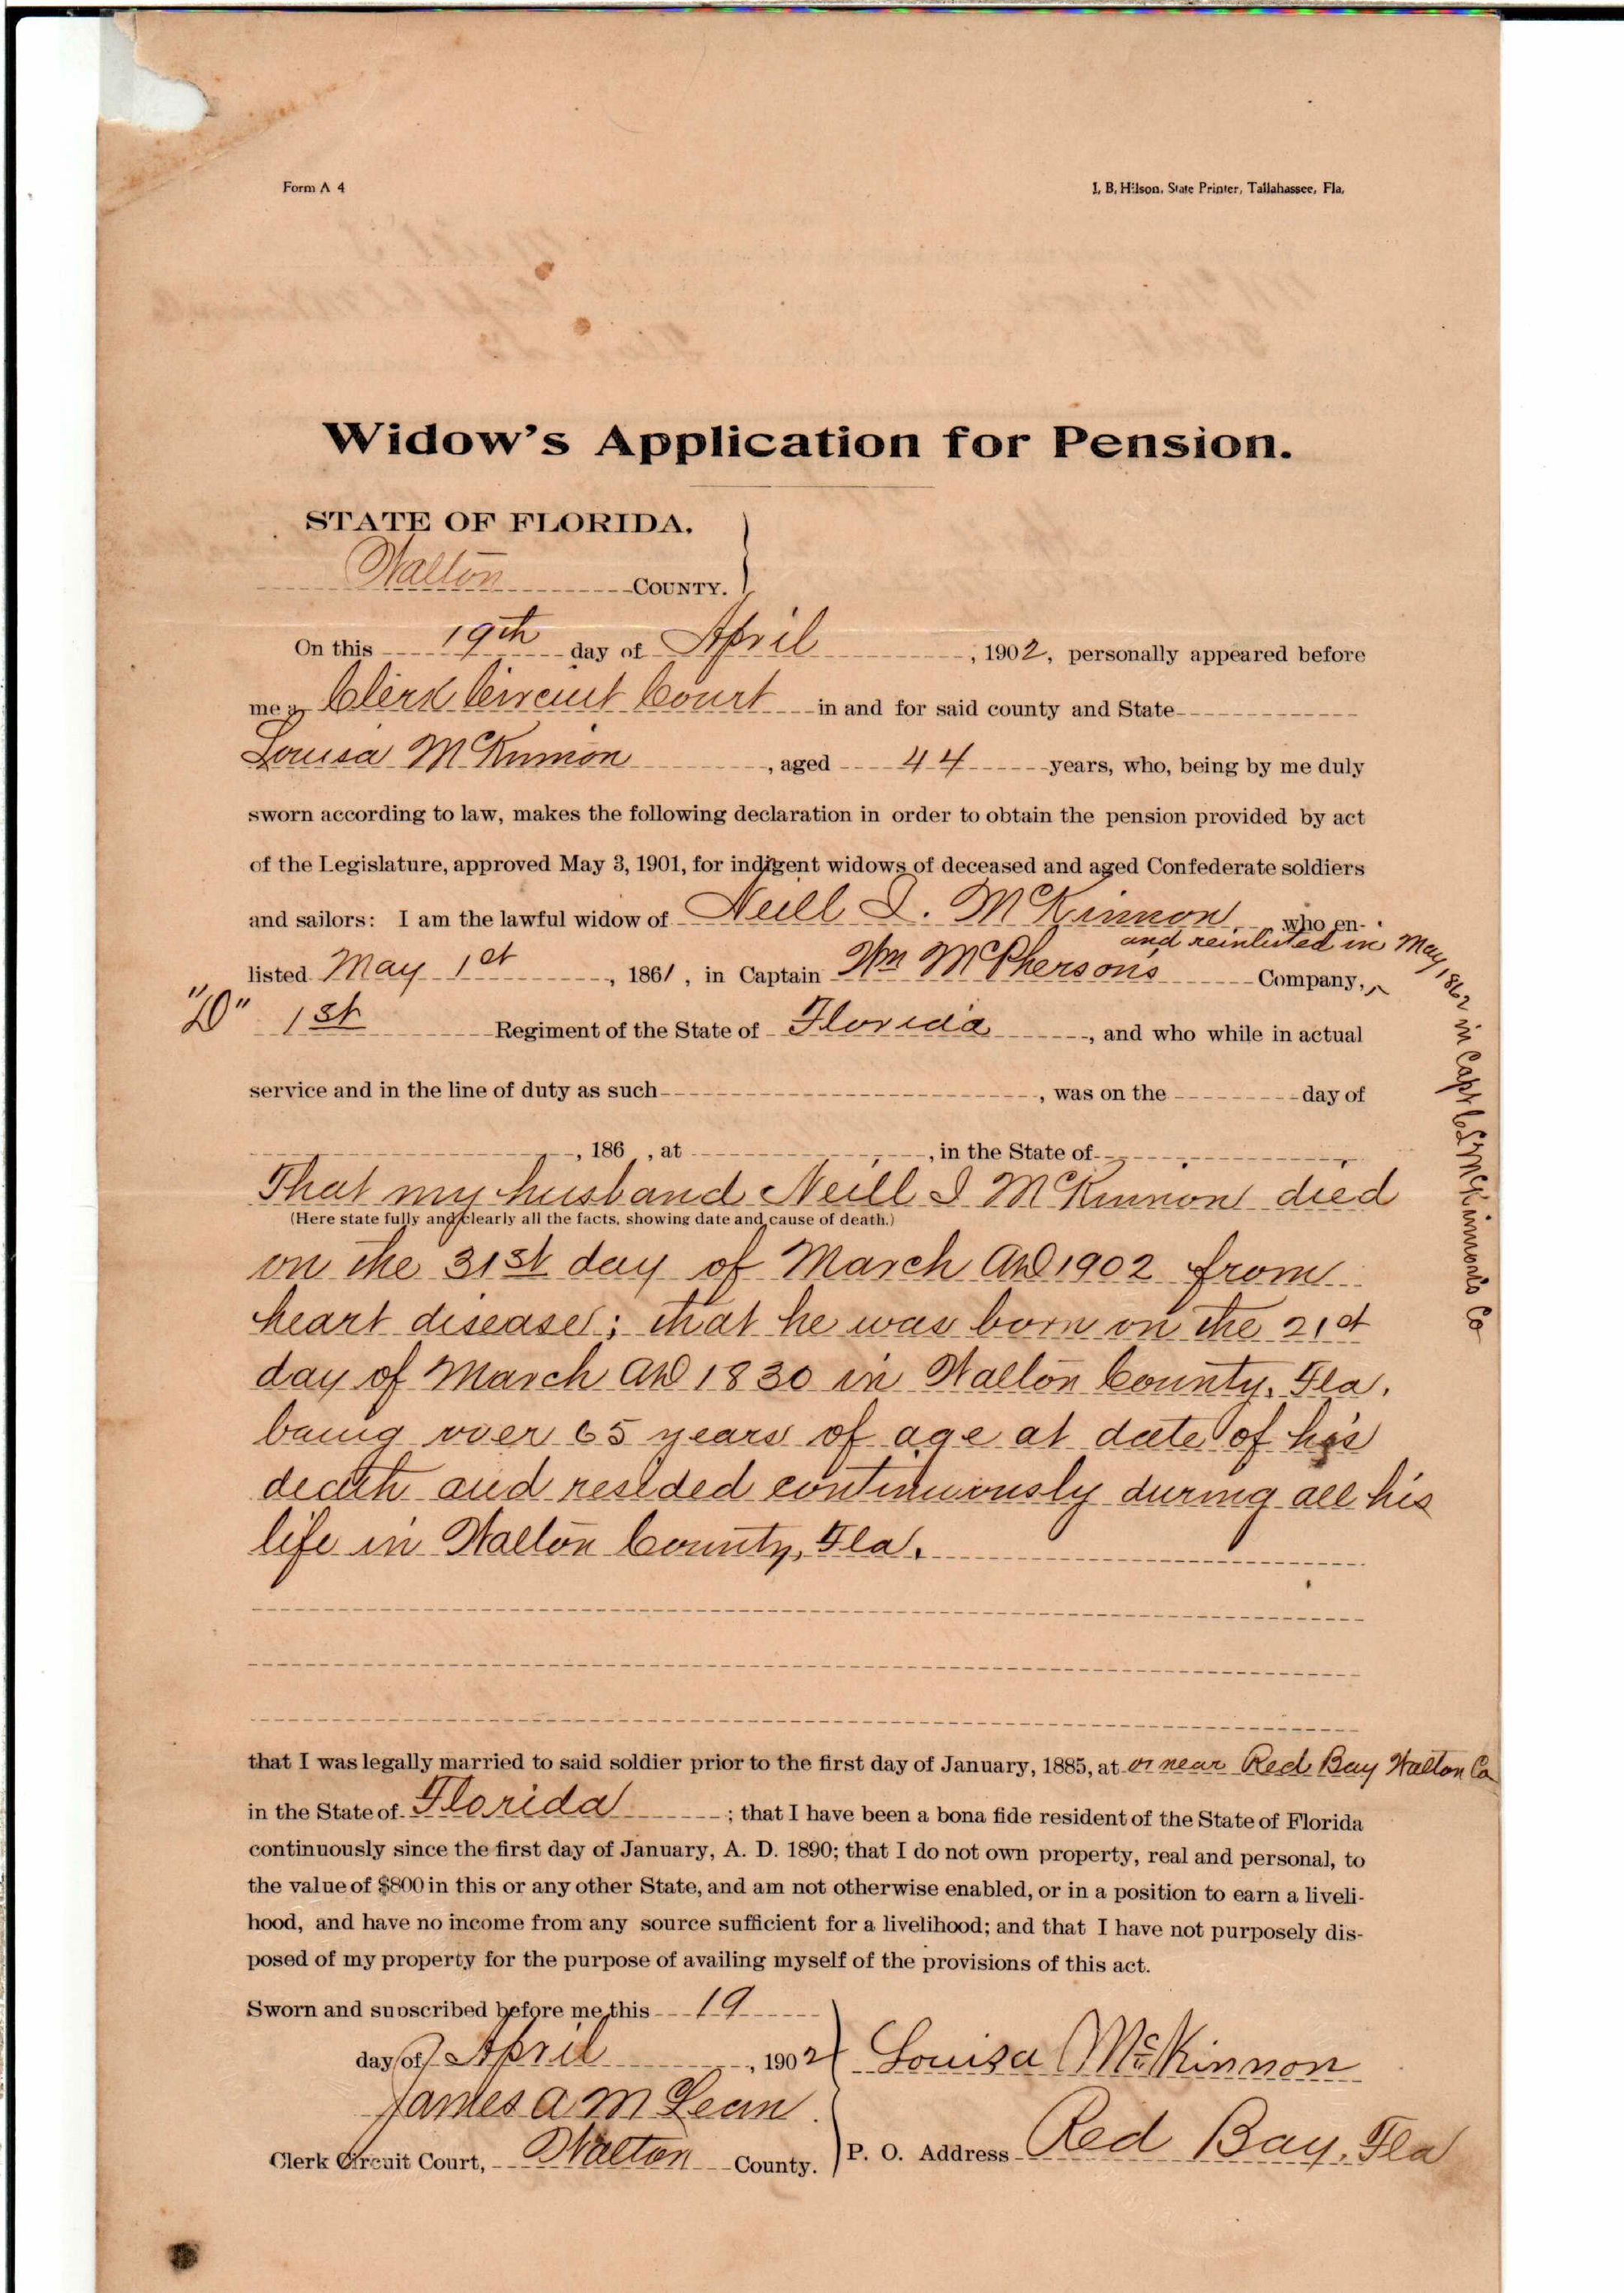 Form A 4
I. B. Hilson, State Printer, Tallahassee, Fla.
Widow's Application for Pension.
STATE OF FLORIDA.
Walton COUNTY.
On this 19th day of April, 1902, personally appeared before
me a Clerk Circuit Court in and for said county and State
Louisa McKinnon, aged 44 years, who, being by me duly
sworn according to law, makes the following declaration in order to obtain the pension provided by act
of the Legislature, approved May 3, 1901, for indigent widows of deceased and aged Confederate soldiers
and sailors: I am the lawful widow of Neill I. McKinnon who en-
and reinlisted in May 1862 in Capt McKinnons Co
listed May 1st, 1861, in Captain Wm McPhersons Company,
"D" 1st Regiment of the State of Florida, and who while in actual
service and in the line of duty as such , was on the day of
, 186 , at , in the State of
That my husband Neill I McKinnon died
(Here state fully and clearly all the facts, showing date and cause of death.)
on the 31st day of March AD 1902 from
heart disease; that he was born on the 21st
day of March AD 1830 in Walton County, Fla.
being over 65 years of age at date of his
death and resided continuously during all his
life in Walton County, Fla.
that I was legally married to said soldier prior to the first day of January, 1885, at or near Red Bay Walton Co
in the State of Florida; that I have been a bona fide resident of the State of Florida
continuously since the first day of January, A. D. 1890; that I do not own property, real and personal, to
the value of $800 in this or any other State, and am not otherwise enabled, or in a position to earn a liveli-
hood, and have no income from any source sufficient for a livelihood; and that I have not purposely dis-
posed of my property for the purpose of availing myself of the provisions of this act.
Sworn and subscribed before me this 19
day of April, 1902
Louisa McKinnon
James A McLean
Clerk Circuit Court, Walton County.
P. O. Address Red Bay, Fla